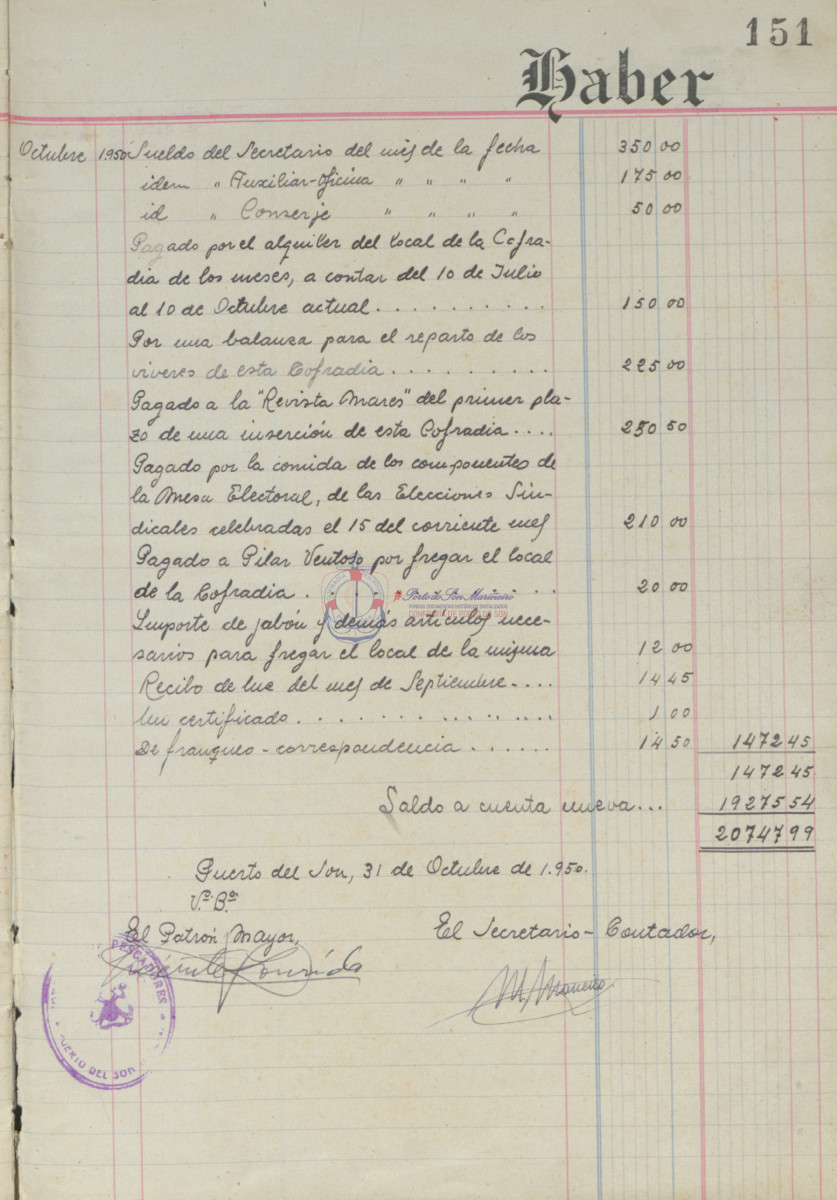 151
Haber
Octubre 1950 Sueldo del Secretario del mes de la fecha 350 00
idem " Auxiliar-Oficina " " " " 175 00
id " Conserje " " " " 50 00
Pagado por el alquiler del local de la Cofra-
dia de los meses, a contar del 10 de Julio
al 10 de Octubre actual.......... 150 00
Por una balanza para el reparto de los
viveres de esta Cofradia.......... 225 00
Pagado a la "Revista Mares" del primer pla-
zo de una inserción de esta Cofradia.... 250 50
Pagado por la comida de los componentes de
la Mesa Electoral, de las Elecciones Sin-
dicales celebradas el 15 del corriente mes 210 00
Pagado a Pilar Ventoso por fregar el local
de la Cofradia.......... 20 00
Porto do Son Mariñeiro
Importe de jabón y demás artículos nece-
sarios para fregar el local de la misma 12 00
Recibo de luz del mes de Septiembre.... 14 45
Un certificado.......... 1 00
De franqueo - correspondencia...... 14 50 1472 45
1472 45
Saldo a cuenta nueva... 19275 54
20747 99
Puerto del Son, 31 de Octubre de 1.950.
V.º B.º
El Patrón Mayor, El Secretario-Contador,
PESCADORES
PUERTO DEL SON